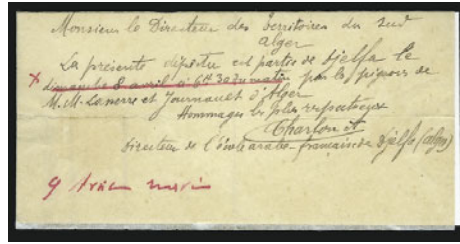 Monsieur le Directeur des Territoires du Sud
Alger
La présente dépêche est partie de Djelfa le
dimanche 8 avril à 6h 30 du matin par les pigeons de
M.M. et Journauet d'Alger
Hommages les plus respectueux
Directeur de l'école arabe-française de Djelfa (alger)